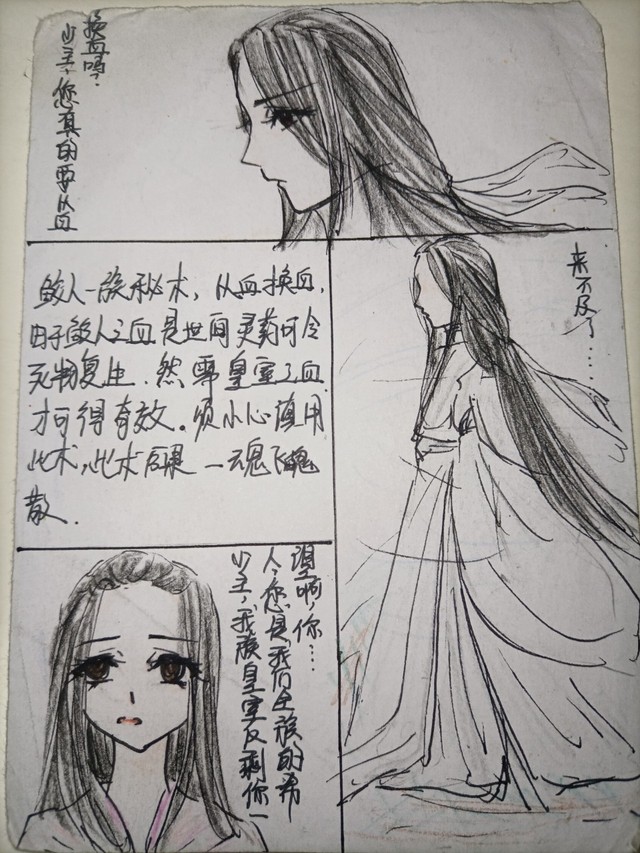 少主,您真的要以血
换血吗?
来不及了......
鲛人一族秘术,以血换血,
由于鲛人之血是世间灵药可令
死物复生.然需皇室之血
才可得有效。须小心慎用
此术,此术后果一魂飞魄
散.
少主,我族皇室仅剩你一
人,您是我们全族的希
望啊,你...